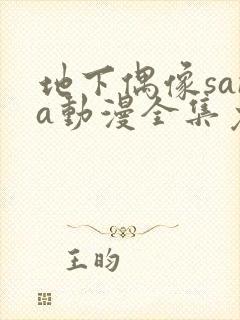 地下偶像sa
a动漫全集
王昀